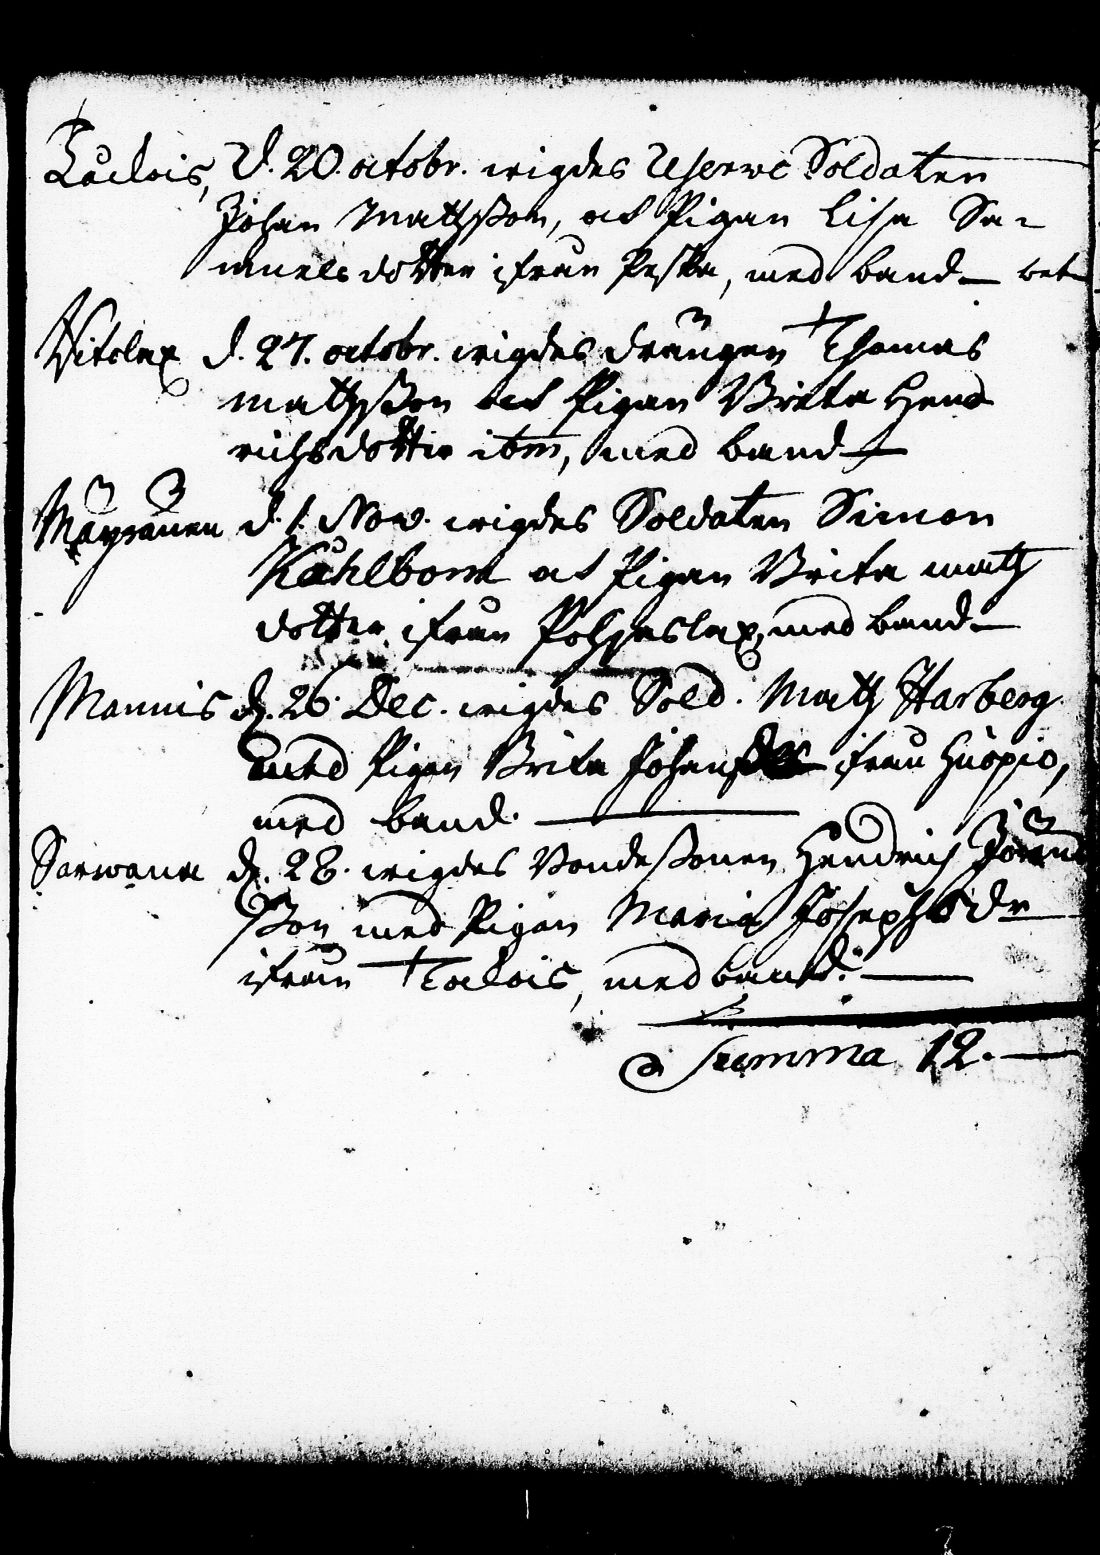 Laclois, D. 20. octobr. wigdes Reserwe Soldaten
Johan Mathsson, at Pigan Lisa Sa-
muelsdotter ifrån Peska, med band
Vitolax d. 27. octobr. wigdes drängen Thomas
Mathsson at Pigan Brita Hend
richsdotter ibm, med band
d. 1. Nov. wigdes Soldaten Simon
Kåhlbom at Pigan Brita Math
dotter ifrån Pohjaslax, med band
Mannis d. 26. Dec. wigdes Sold. Math Harberg
med Pigan Brita Johans ifrån Huopio,
med band.
Sarwana d. 28. wigdes Bondesonen Hendrich Jörans
son med Pigan Maria Josephsdr
ifrån Talois, med band.
Summa 12.